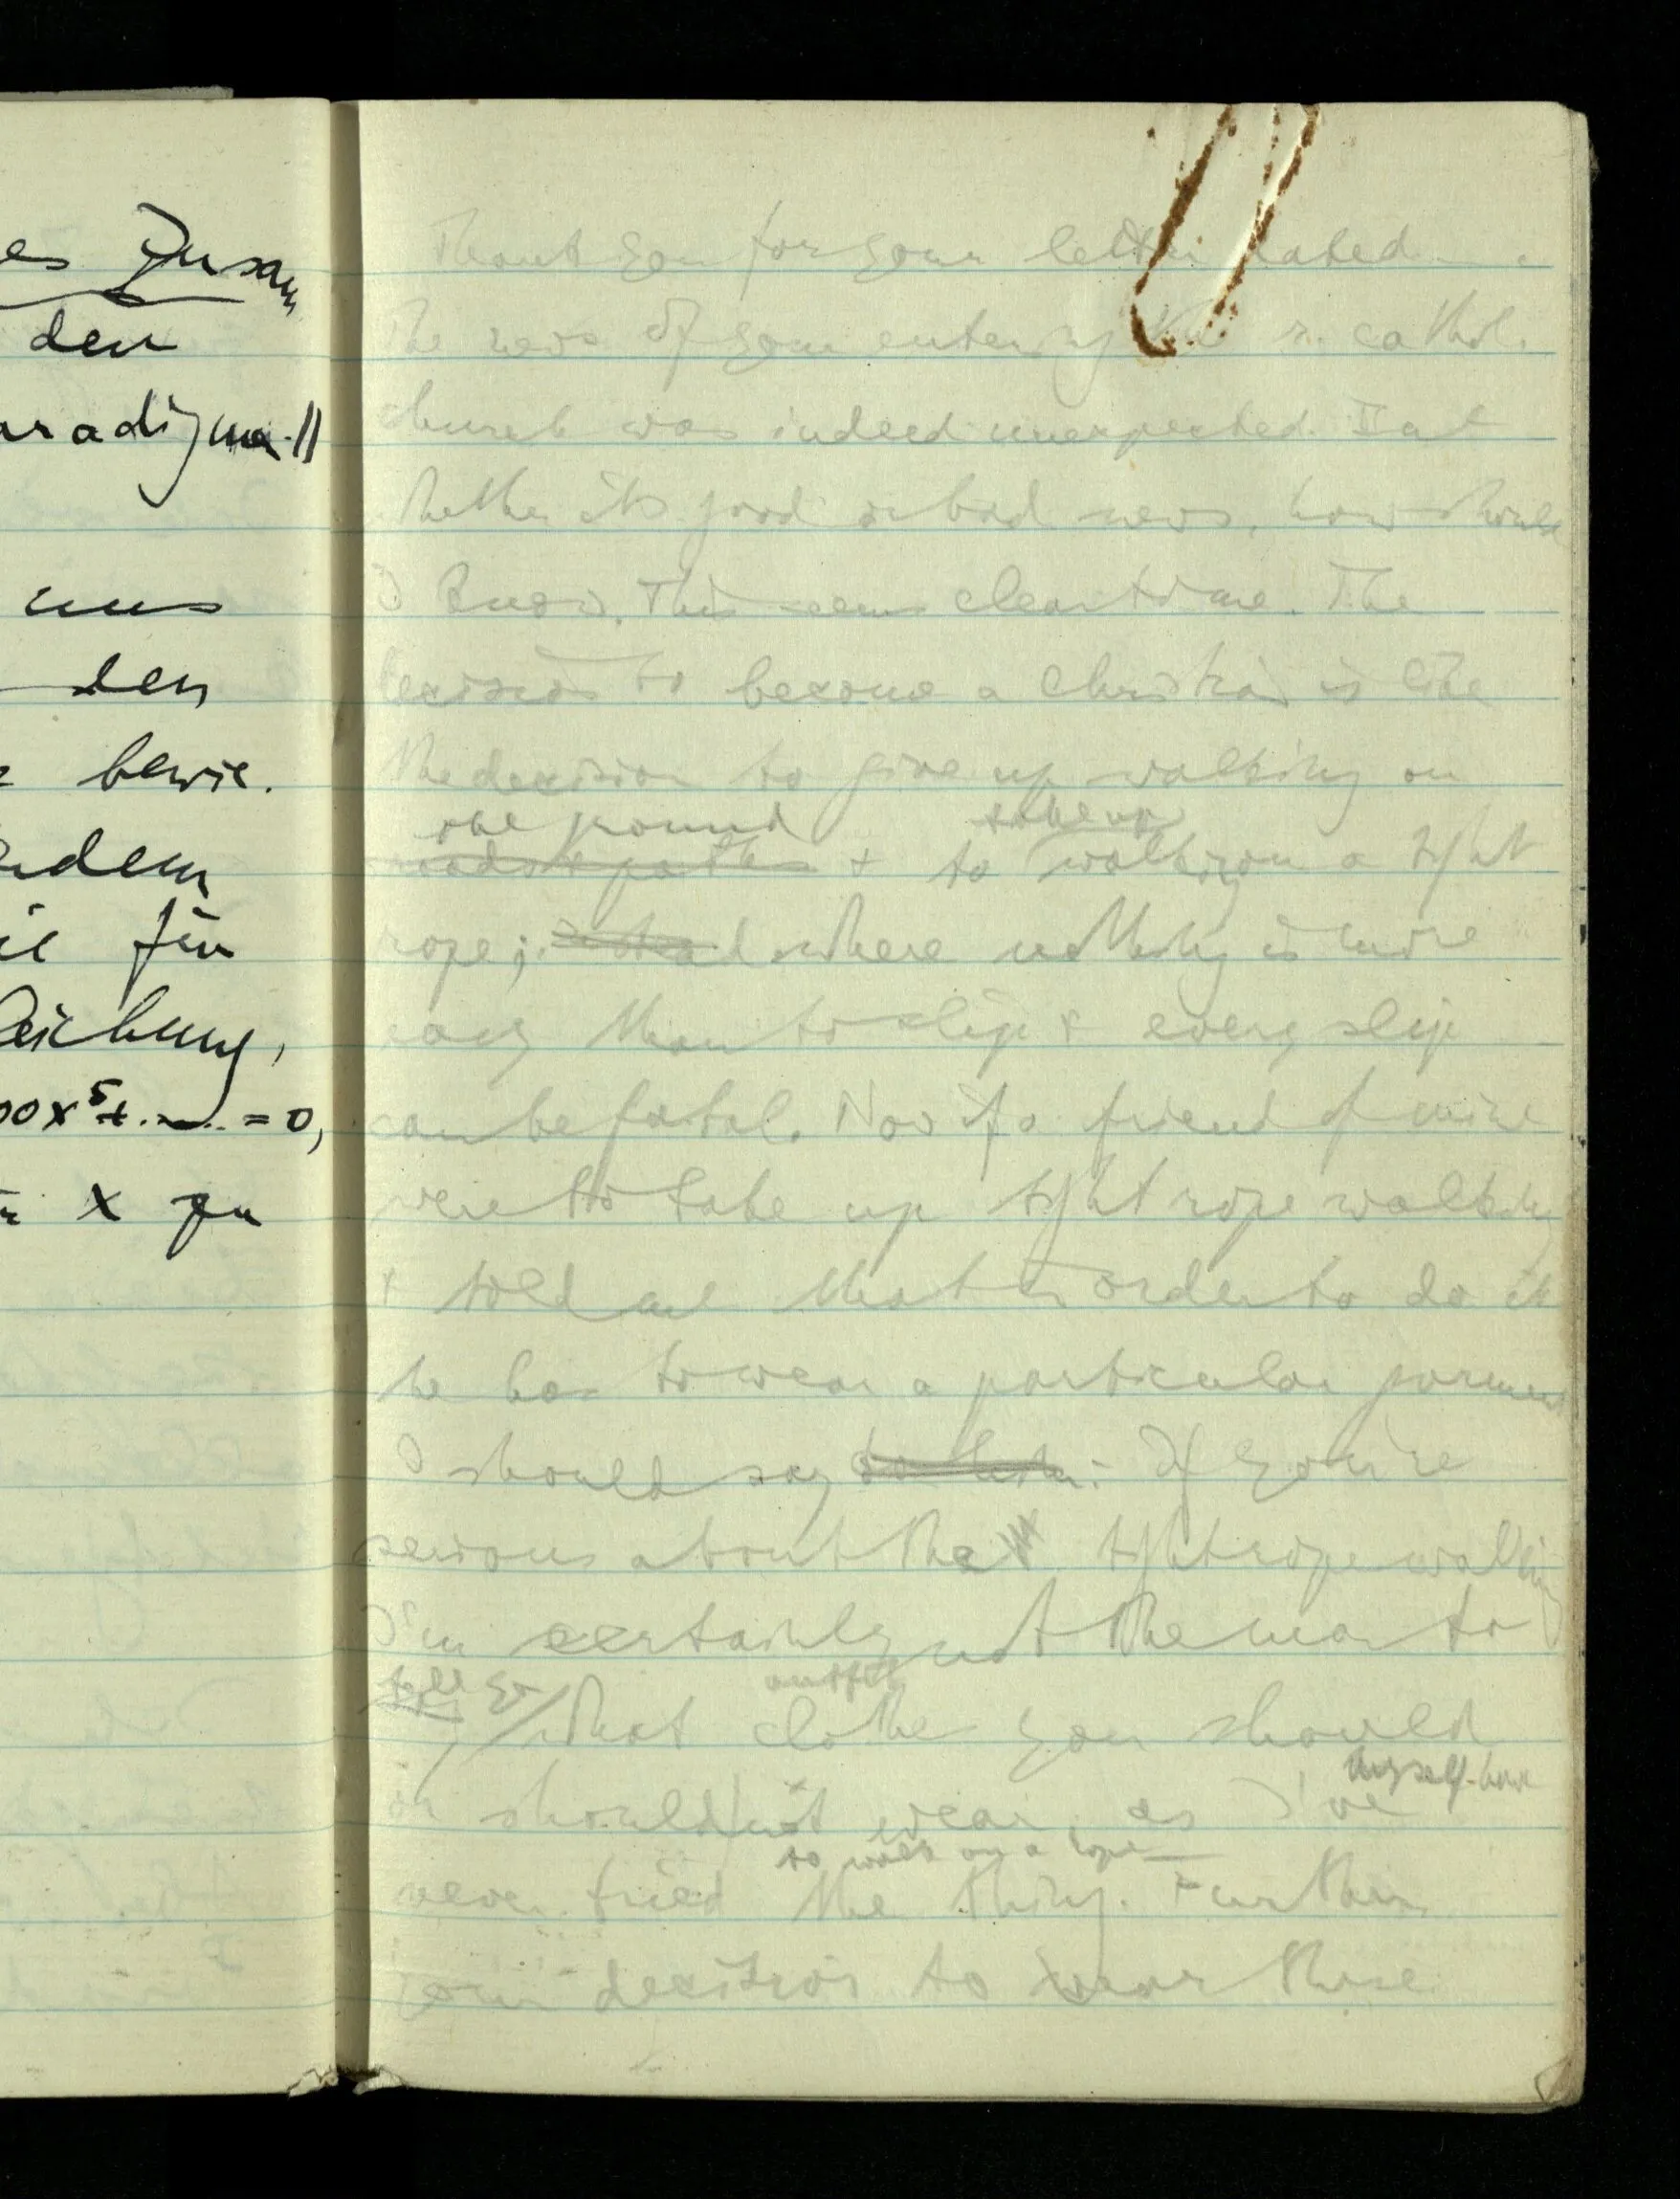 es Zusam
den
aradigma.||
uns
den
bewie.
für
00x⁵+.....=0,
x zu
Thank you for your letter dated
The news of your entering the r. cathol.
church was indeed unexpected. But
hether it's good or bad news, how should
I know. This seems clear to me. The
decision to become a Christian is like
the decision to give up walking on
the ground take up
roads & paths & to walking on a tight
rope; where nothing is more
easy than to slip & every slip
can be fatal. Now if a friend of mine
were to take up tightrope walking
& told me that in order to do it
he has to wear a particular garment
I should say to him: If you're
serious about the tightrope walking
I'm certainly not the man to
tell you outfit
what clothes you should
myself have
or shouldn't wear, as I've
to walk on a rope
never tried the thing. Further
your decision to wear these